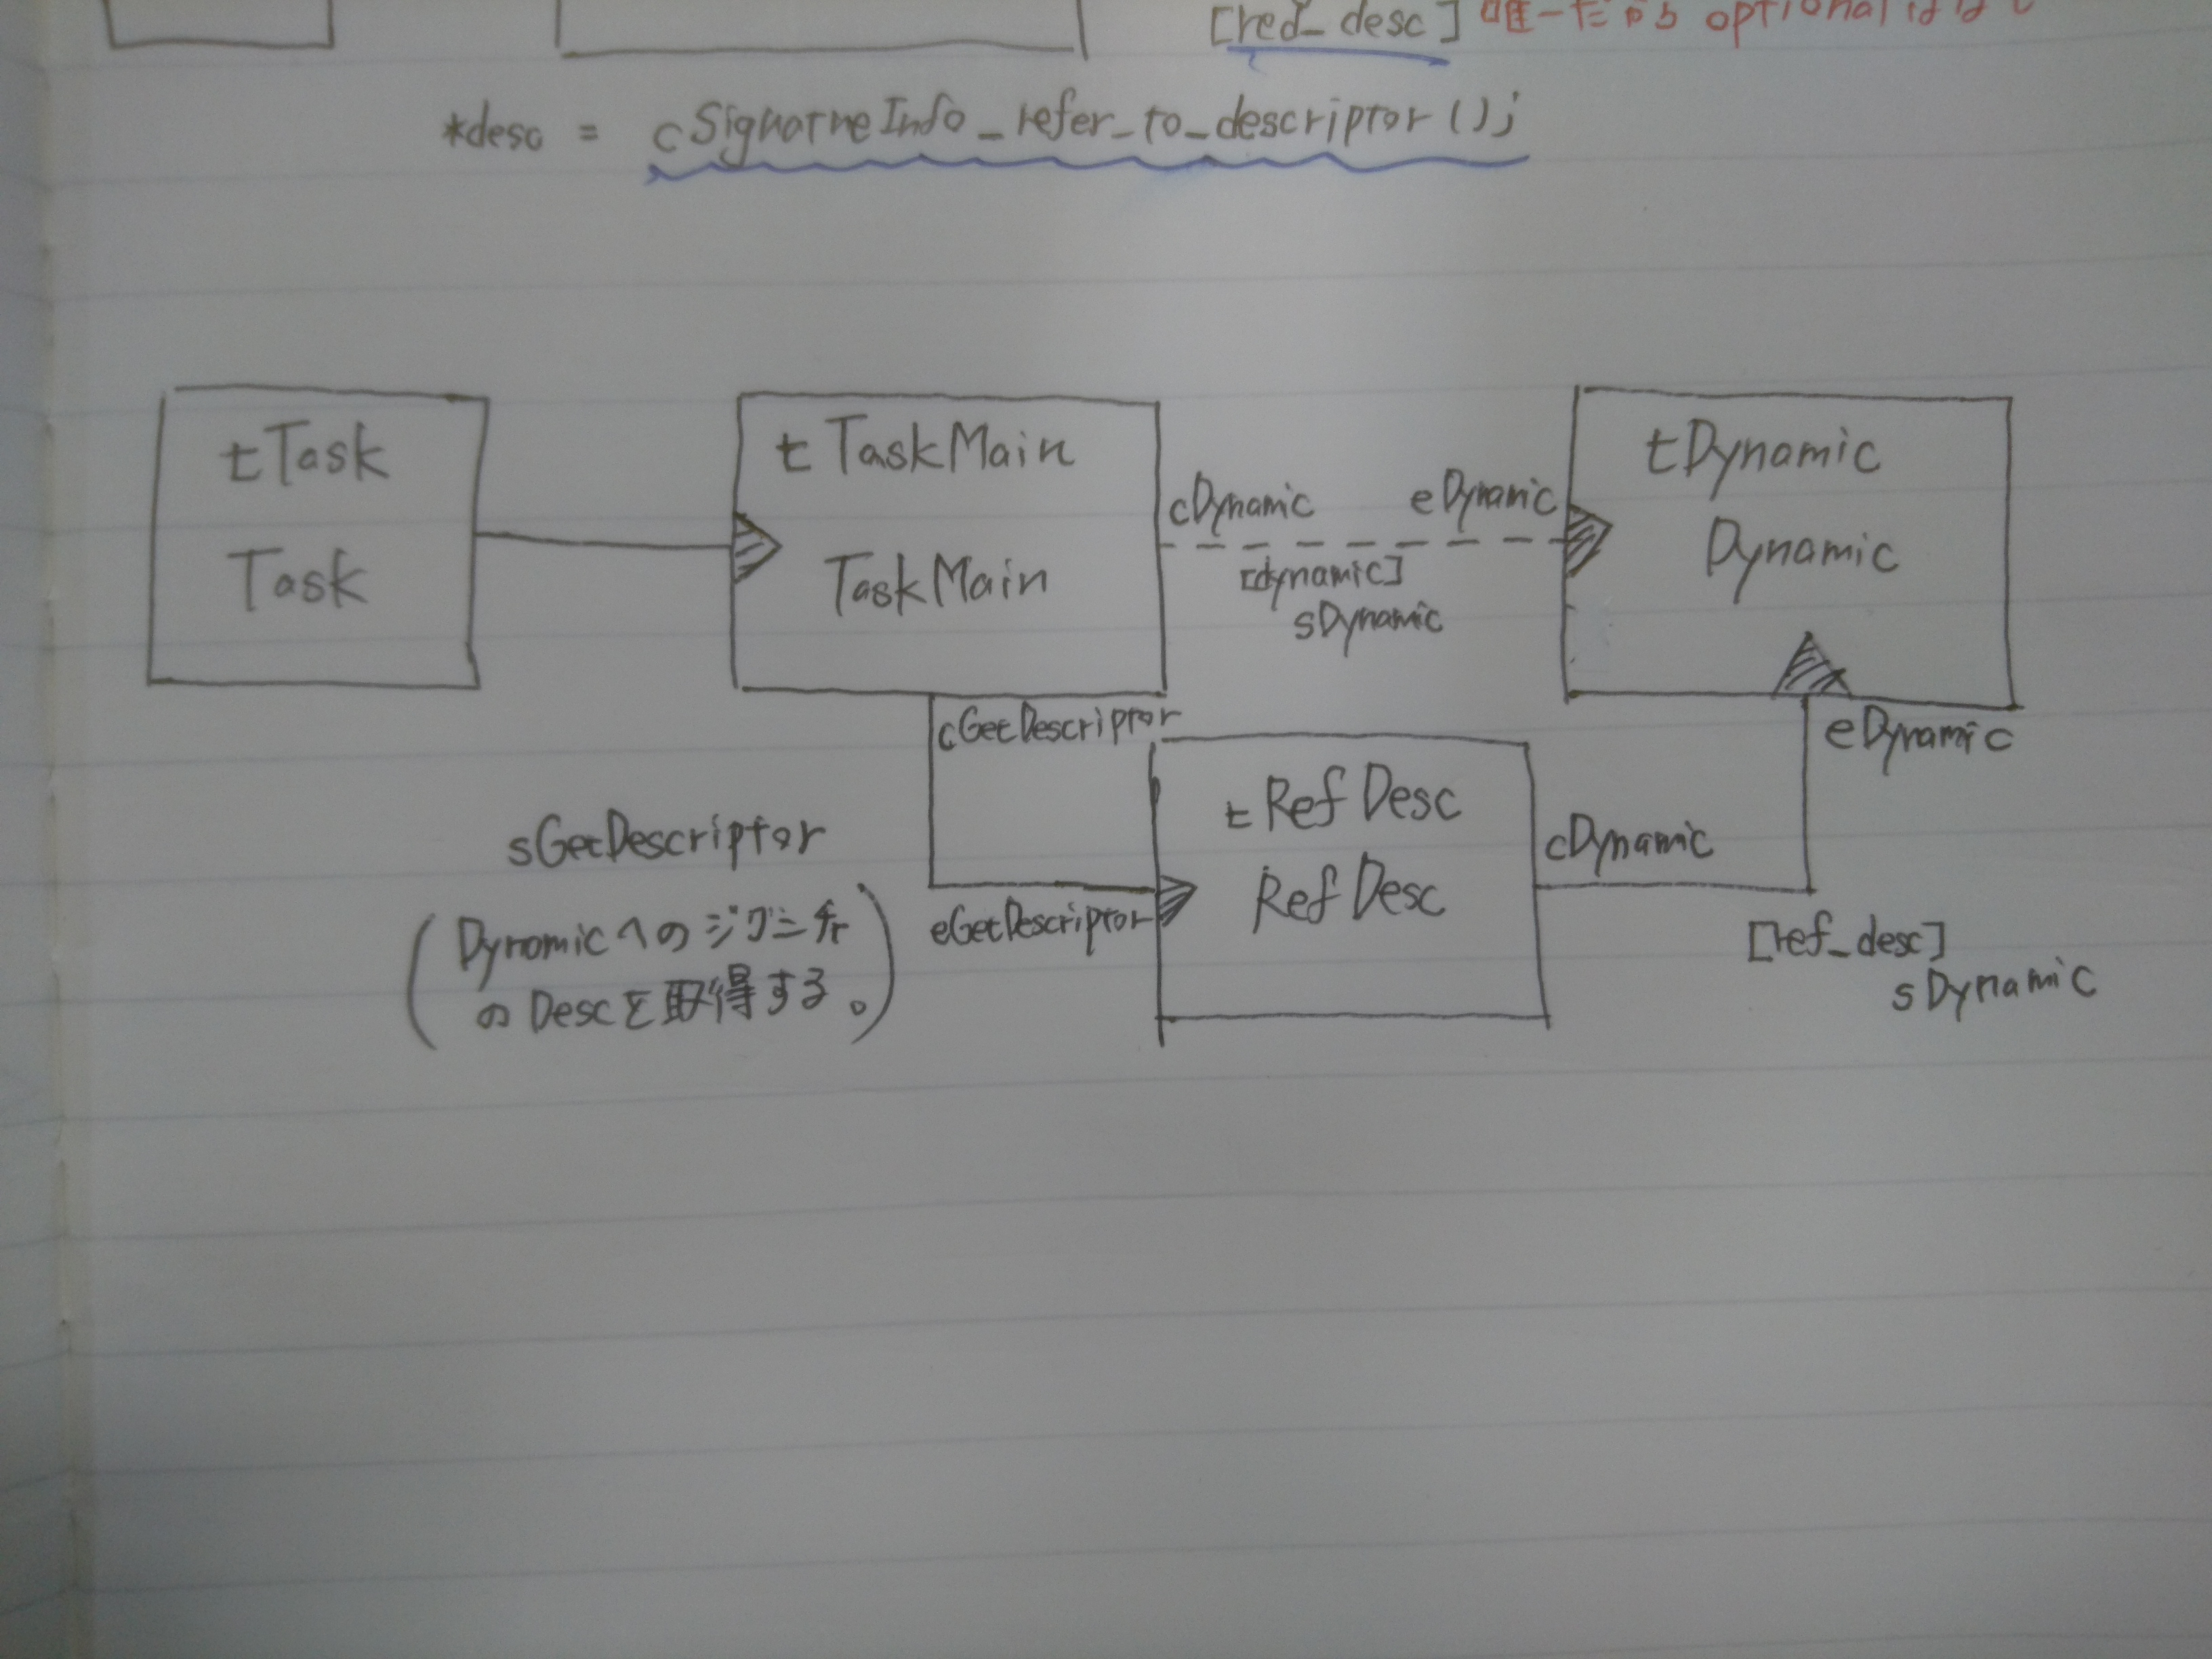 [red_desc] 唯一だから optional はなし
*desc = cSignatreInfo_refer_to_descriptor();
tTask
Task
tTaskMain
TaskMain
cDynamic
eDynamic
[dynamic]
sDynamic
tDynamic
Dynamic
cGetDescriptor
eDynamic
sGetDescriptor
(Dynamicへのシグニチャ
のDescを取得する。)
eGetDescriptor
tRefDesc
RefDesc
cDynamic
[ref_desc]
sDynamic